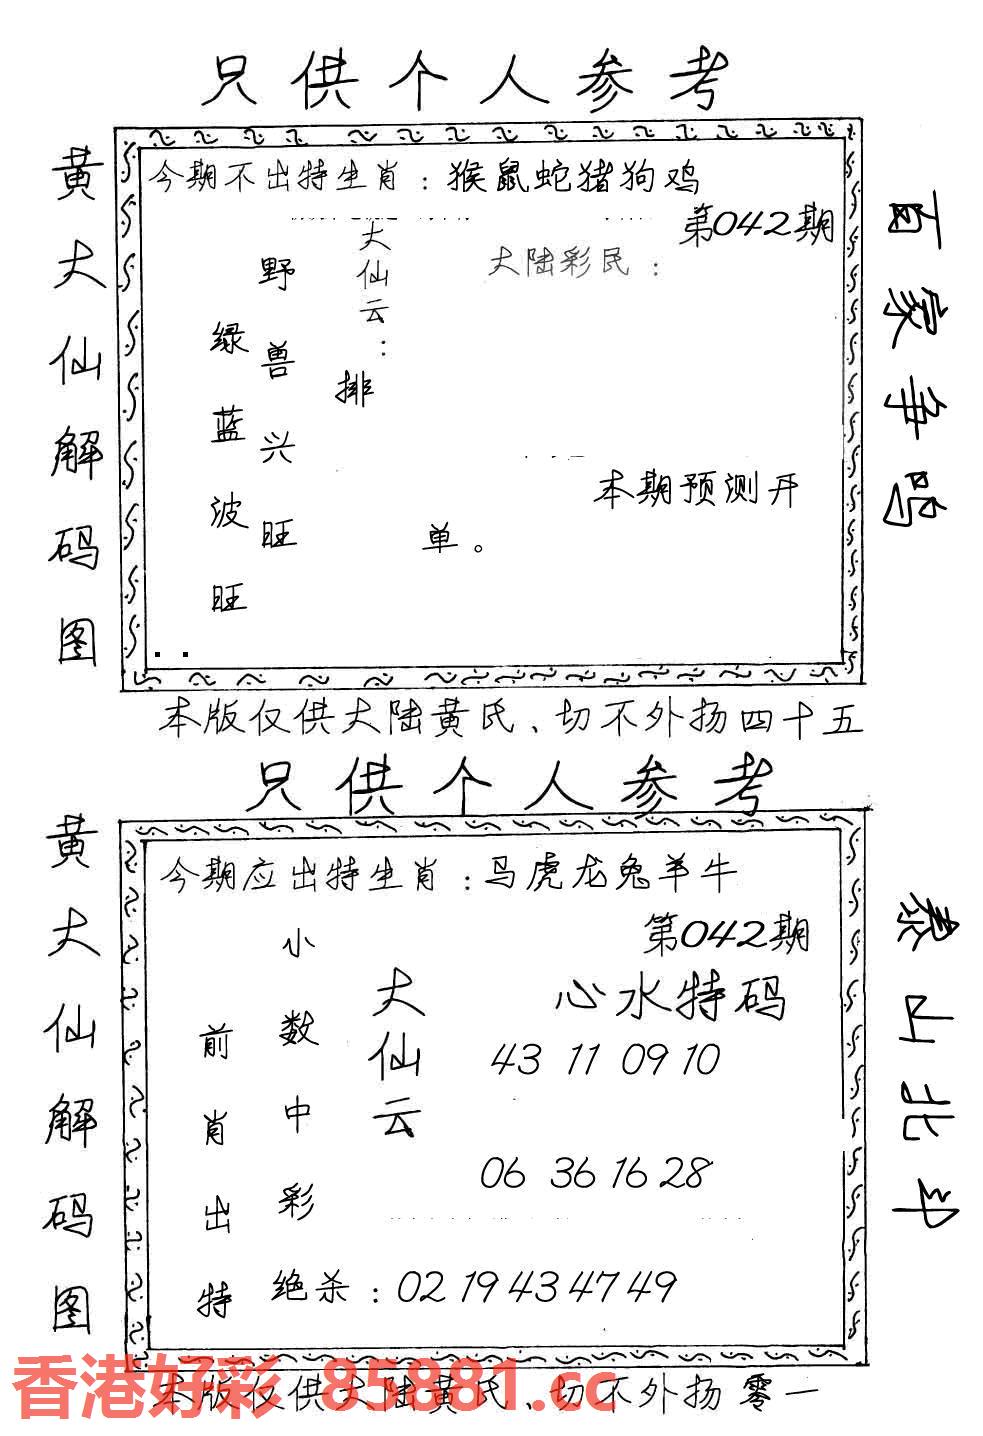 只供个人参考
黄大仙解码图
今期不出特生肖：猴鼠蛇猪狗鸡
第042期
大仙云：
排
大陆彩民：
野兽兴旺
绿蓝波旺
单。
本期预测开
百家争鸣
本版仅供大陆黄氏、切不外扬四十五
只供个人参考
黄大仙解码图
今期应出特生肖：马虎龙兔羊牛
第042期
小数中彩
前肖出特
大仙云
心水特码
43 11 09 10
06 36 16 28
绝杀：02 19 43 47 49
泰山北斗
香港好彩 85881.cc
本版仅供大陆黄氏、切不外扬零一